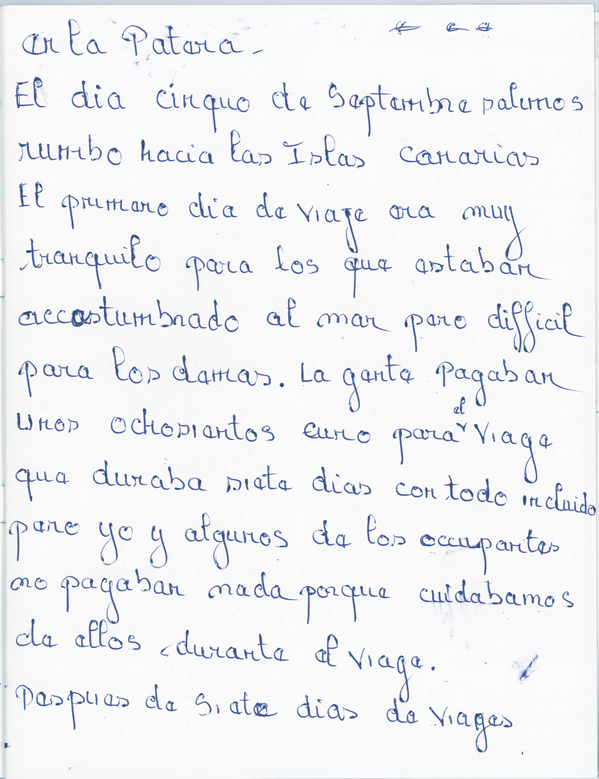 en la Patera -
El dia cinquo de Septembre salimos
rumbo hacia las Islas canarias
El primero dia de viaje era muy
tranquilo para los que estaban
accostumbrado al mar pero difficil
para los demas. La gente Pagaban
unos ochosientos euro para el viage
que duraba siete dias con todo incluido
pero yo y algunos de los occupantes
no pagaban nada porque cuidabamos
de ellos durante el viage.
Despues de siete dias de viages